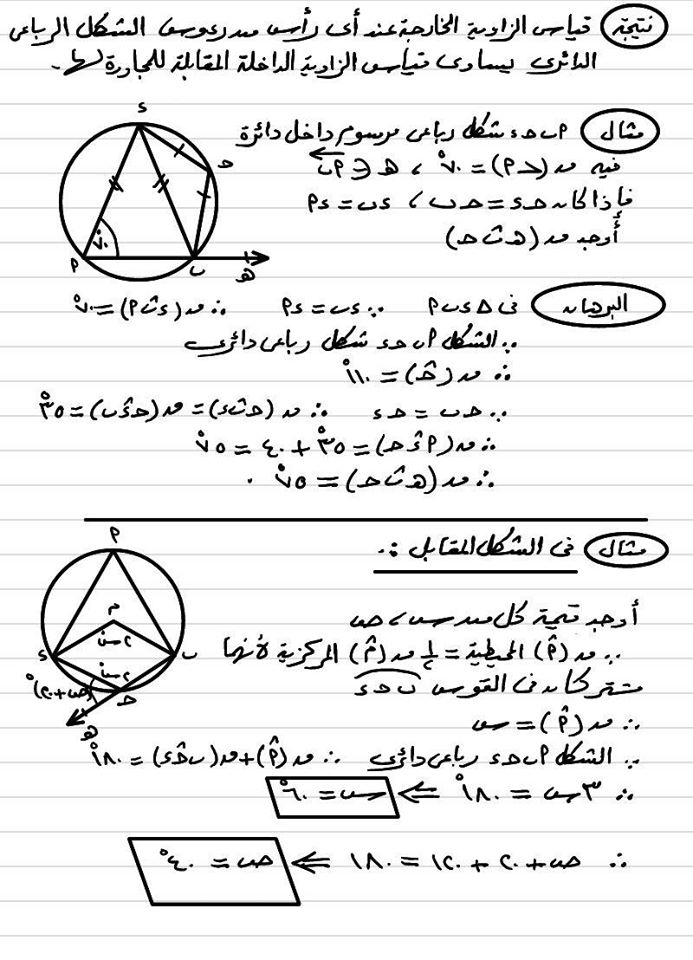 نتيجة قياس الزاوية الخارجة عند أى رأس من رءوس الشكل الرباعى
الدائرى يساوى قياس الزاوية الداخلة المقابلة للمجاورة لها.
مثال أ ب حـ ء شكل رباعى مرسوم داخل دائرة
فيه ق(أ) = ٧٠° ، هـ ∈ أب
فإذا كان حـ ء = حـ ب ، ء ب = ء أ
أوجد ق(هـ ب حـ)
ء
حـ
٧٠°
أ
ب
هـ
البرهان فى Δ أ ب ء ∵ ء ب = ء أ ∴ ق(ء ب أ) = ٧٠°
∵ الشكل أ ب حـ ء شكل رباعى دائرى
∴ ق(حـ) = ١١٠°
∵ حـ ب = حـ ء ∴ ق(حـ ب ء) = ق(حـ ء ب) = ٣٥°
∴ ق(أ ء حـ) = ٣٥° + ٤٠ = ٧٥°
∴ ق(هـ ب حـ) = ٧٥° .
مثال فى الشكل المقابل :.
أ
م
٢س°
ء
ب
٢س°
(ص+٢٠)°
حـ
هـ
أوجد قيمة كل من س ، ص
∵ ق(أ) المحيطية = ١/٢ ق(م) المركزية لأنهما
مشتركتان فى القوس ب حـ ء
∴ ق(أ) = س
∵ الشكل أ ب حـ ء رباعى دائرى ∴ ق(أ) + ق(ب حـ ء) = ١٨٠°
∴ ٣س = ١٨٠° ⇐ س = ٦٠°
∴ ص + ٢٠ + ١٢٠ = ١٨٠ ⇐ ص = ٤٠°